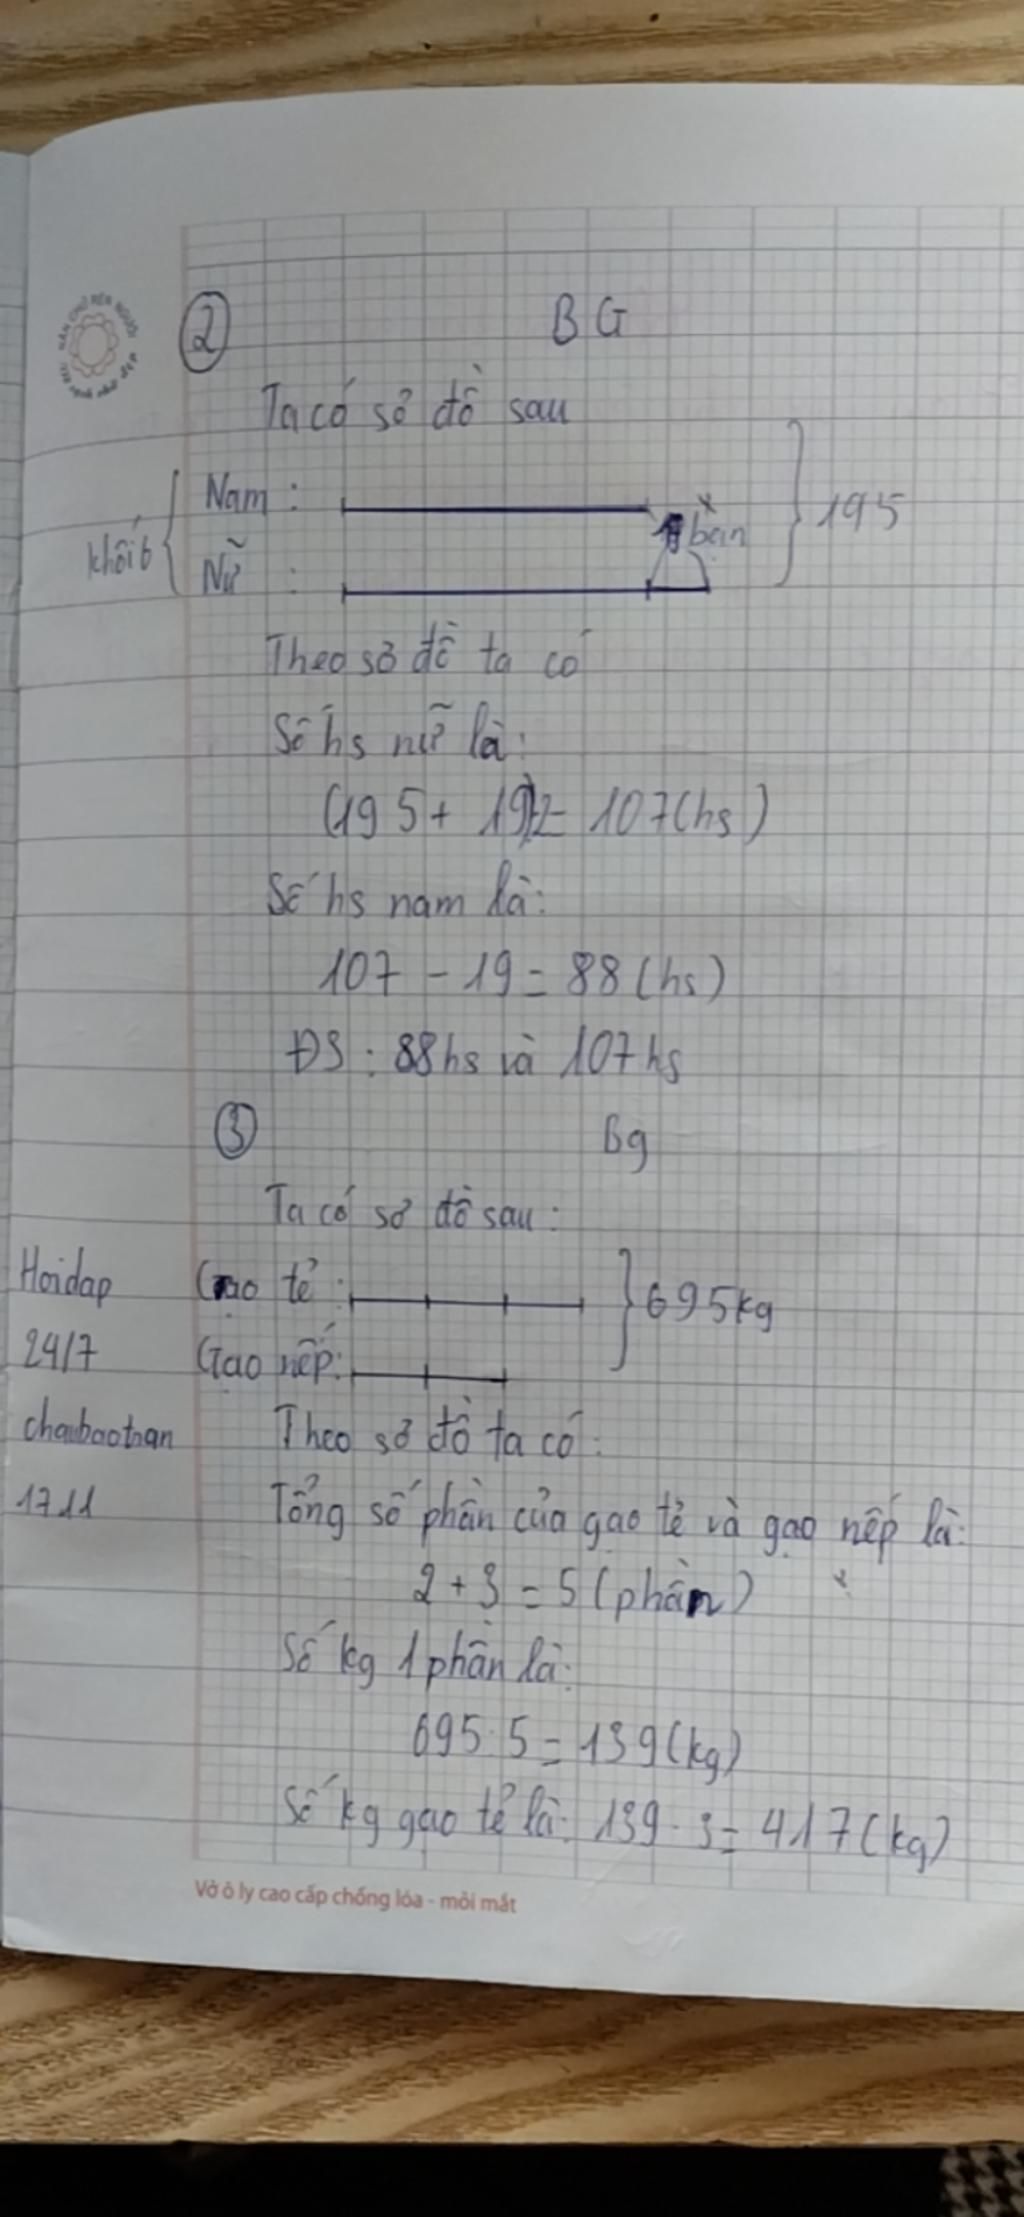 ② BG
Ta có sơ đồ sau
khối 6
Nam :
Nữ :
bạn
195
Theo sơ đồ ta có
Số hs nữ là:
(195 + 19):2 = 107 (hs)
Số hs nam là:
107 - 19 = 88 (hs)
ĐS : 88hs và 107hs
③ Bg
Ta có sơ đồ sau :
Hoidap
Gạo tẻ : 695kg
24/7
Gạo nếp:
chaubaotran
Theo sơ đồ ta có :
1711
Tổng số phần của gạo tẻ và gạo nếp là:
2 + 3 = 5 (phần)
Số kg 1 phần là:
695 : 5 = 139 (kg)
Số kg gạo tẻ là: 139 . 3 = 417 (kg)
Vở ô ly cao cấp chống lóa - mỏi mắt